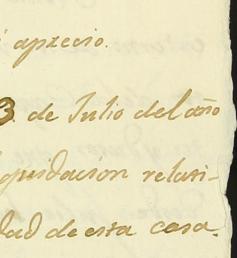 aprecio.
3. de Julio del año
quidación relati-
dad de esta casa.